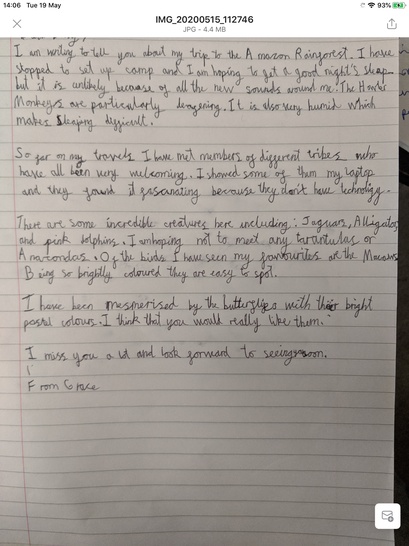 14:06 Tue 19 May
93%
IMG_20200515_112746
JPG - 4.4 MB
I am writing to tell you about my trip to the Amazon Rainforest. I have
stopped to set up camp and I am hoping to get a good night's sleep
but it is unlikely because of all the new sounds around me. The Howler
Monkeys are particularly deafening. It is also very humid which
makes sleaping difficult.
So far on my travels I have met members of different tribes who
have all been very welcoming. I showed some of them my laptop
and they found it fascinating because they don't have technology.
There are some incredible creatures here including: Jaguars, Alligators
and pink dolphins. I am hoping not to meet any tarantulas or
Anarcondas. Of the birds I have seen my favourites are the Macaws
Being so brightly coloured they are easy to spot.
I have been mesmerised by the butterflies with their bright
pastel colours. I think that you would really like them.
I miss you a lot and look forward to seeing soon.
From Grace